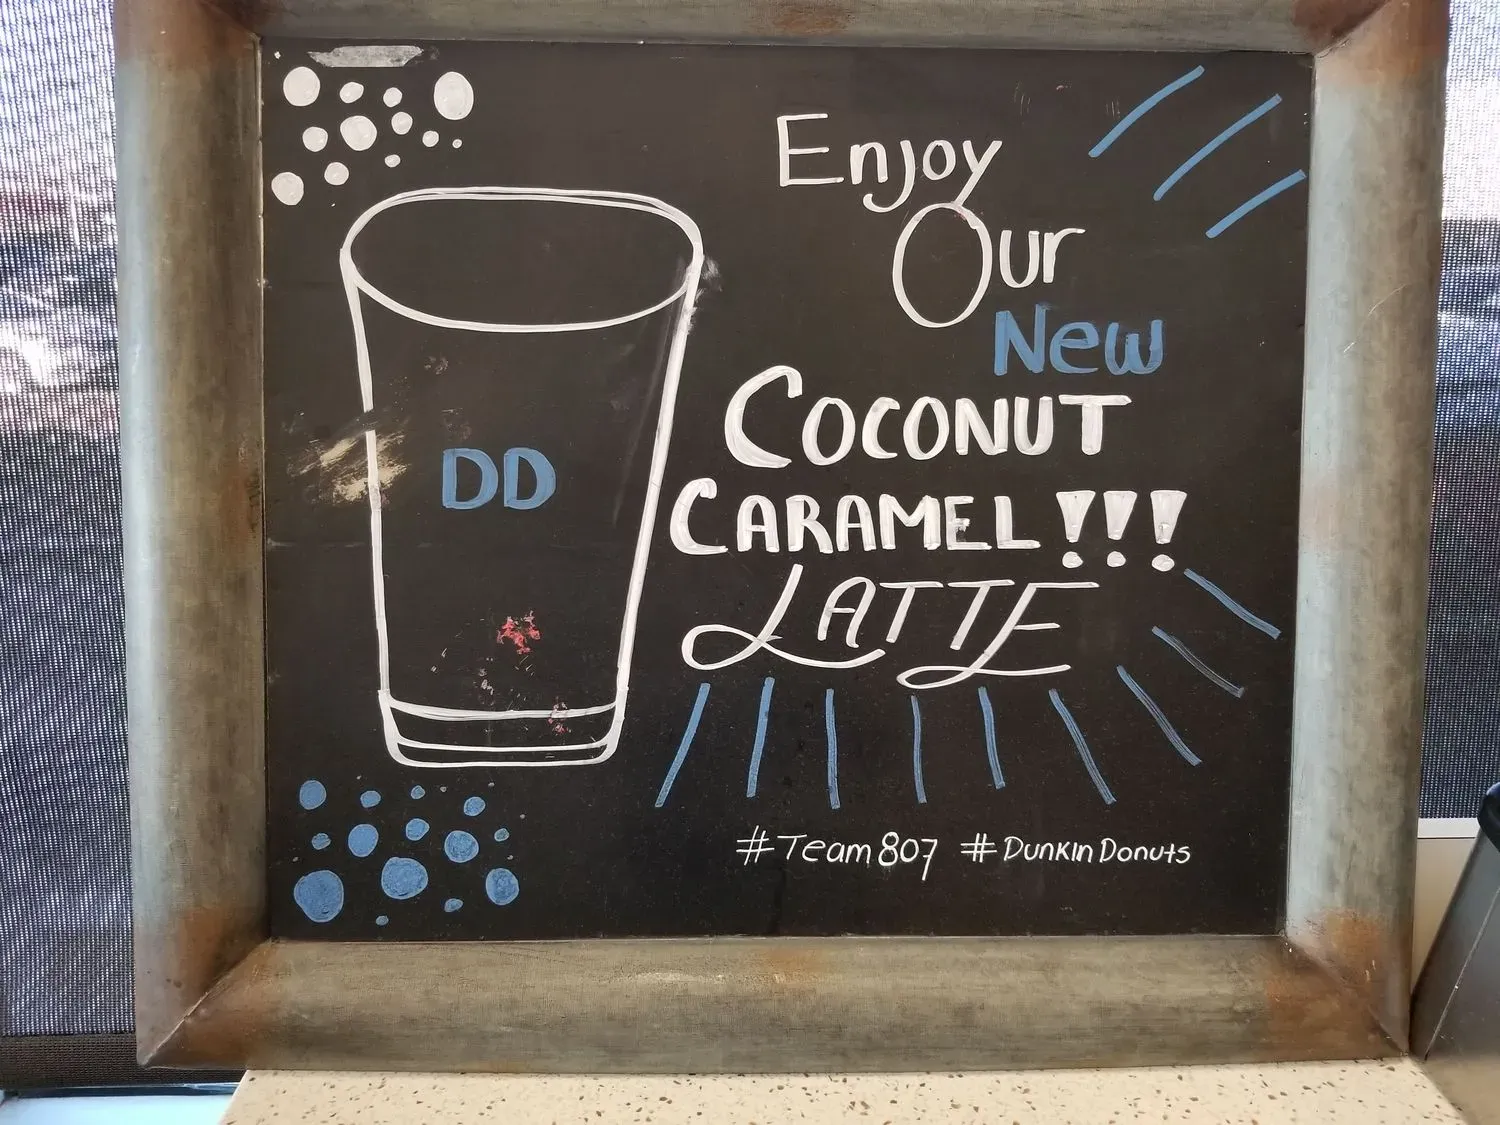 Enjoy
Our
New
COCONUT
CARAMEL!!!
LATTE
DD
#Team807 #DunkinDonuts